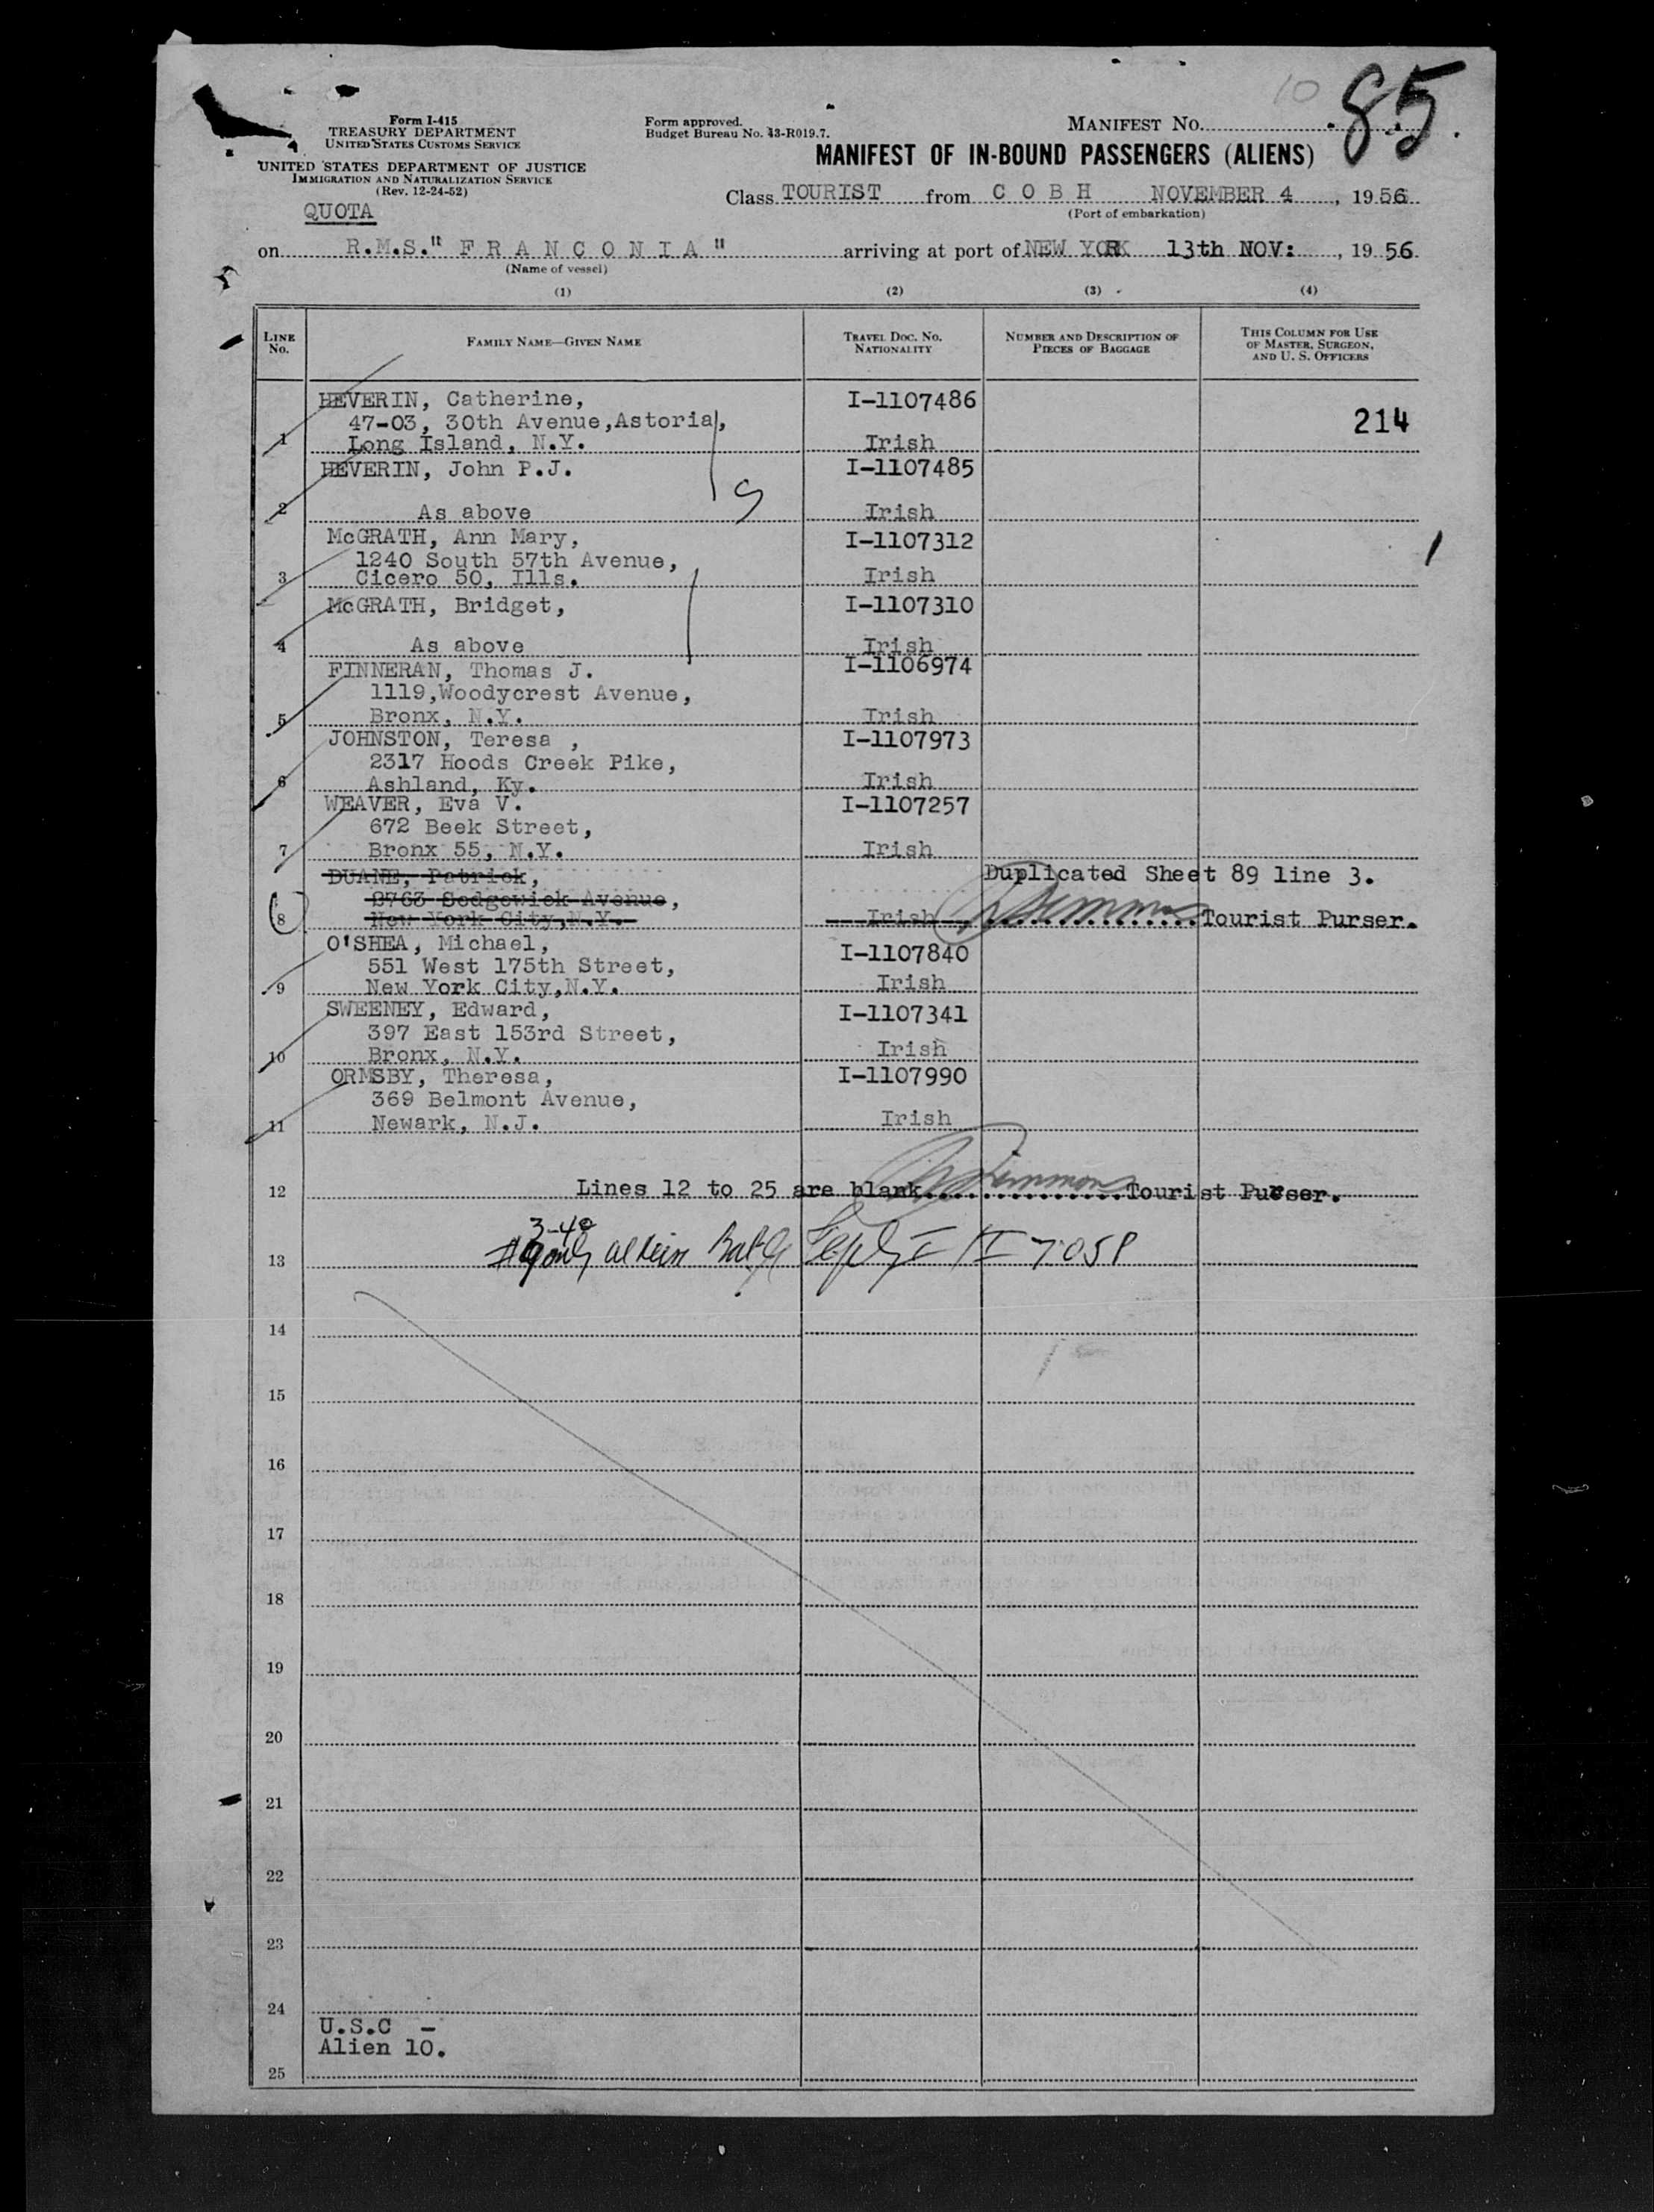 10 85.
Form I-415
TREASURY DEPARTMENT
UNITED STATES CUSTOMS SERVICE
UNITED STATES DEPARTMENT OF JUSTICE
IMMIGRATION AND NATURALIZATION SERVICE
(Rev. 12-24-52)
QUOTA
Form approved.
Budget Bureau No. 43-R019.7.
MANIFEST NO.
MANIFEST OF IN-BOUND PASSENGERS (ALIENS)
Class TOURIST from C O B H NOVEMBER 4, 1956
(Port of embarkation)
on R.M.S." F R A N C O N I A " arriving at port of NEW YORK 13th NOV:, 1956
(Name of vessel)
(1) (2) (3) (4)
LINE NO. FAMILY NAME—GIVEN NAME TRAVEL DOC. NO. NATIONALITY NUMBER AND DESCRIPTION OF PIECES OF BAGGAGE THIS COLUMN FOR USE OF MASTER, SURGEON, AND U. S. OFFICERS
HEVERIN, Catherine, I-1107486
47-03, 30th Avenue,Astoria, 214
1 Long Island, N.Y. Irish
HEVERIN, John P.J. I-1107485
2 As above Irish
McGRATH, Ann Mary, I-1107312
1240 South 57th Avenue,
3 Cicero 50, Ills. Irish
McGRATH, Bridget, I-1107310
4 As above Irish
FINNERAN, Thomas J. I-1106974
1119,Woodycrest Avenue,
5 Bronx, N.Y. Irish
JOHNSTON, Teresa , I-1107973
2317 Hoods Creek Pike,
6 Ashland, Ky. Irish
WEAVER, Eva V. I-1107257
672 Beek Street,
7 Bronx 55, N.Y. Irish
DUANE, Patrick, Duplicated Sheet 89 line 3.
Sedgewick Avenue,
8 New York City,N.Y. Irish Tourist Purser.
O'SHEA, Michael, I-1107840
551 West 175th Street,
9 New York City,N.Y. Irish
SWEENEY, Edward, I-1107341
397 East 153rd Street,
10 Bronx, N.Y. Irish
ORMSBY, Theresa, I-1107990
369 Belmont Avenue,
11 Newark, N.J. Irish
12 Lines 12 to 25 are blank...............Tourist Purser.
13
14
15
16
17
18
19
20
21
22
23
24
U.S.C -
Alien 10.
25